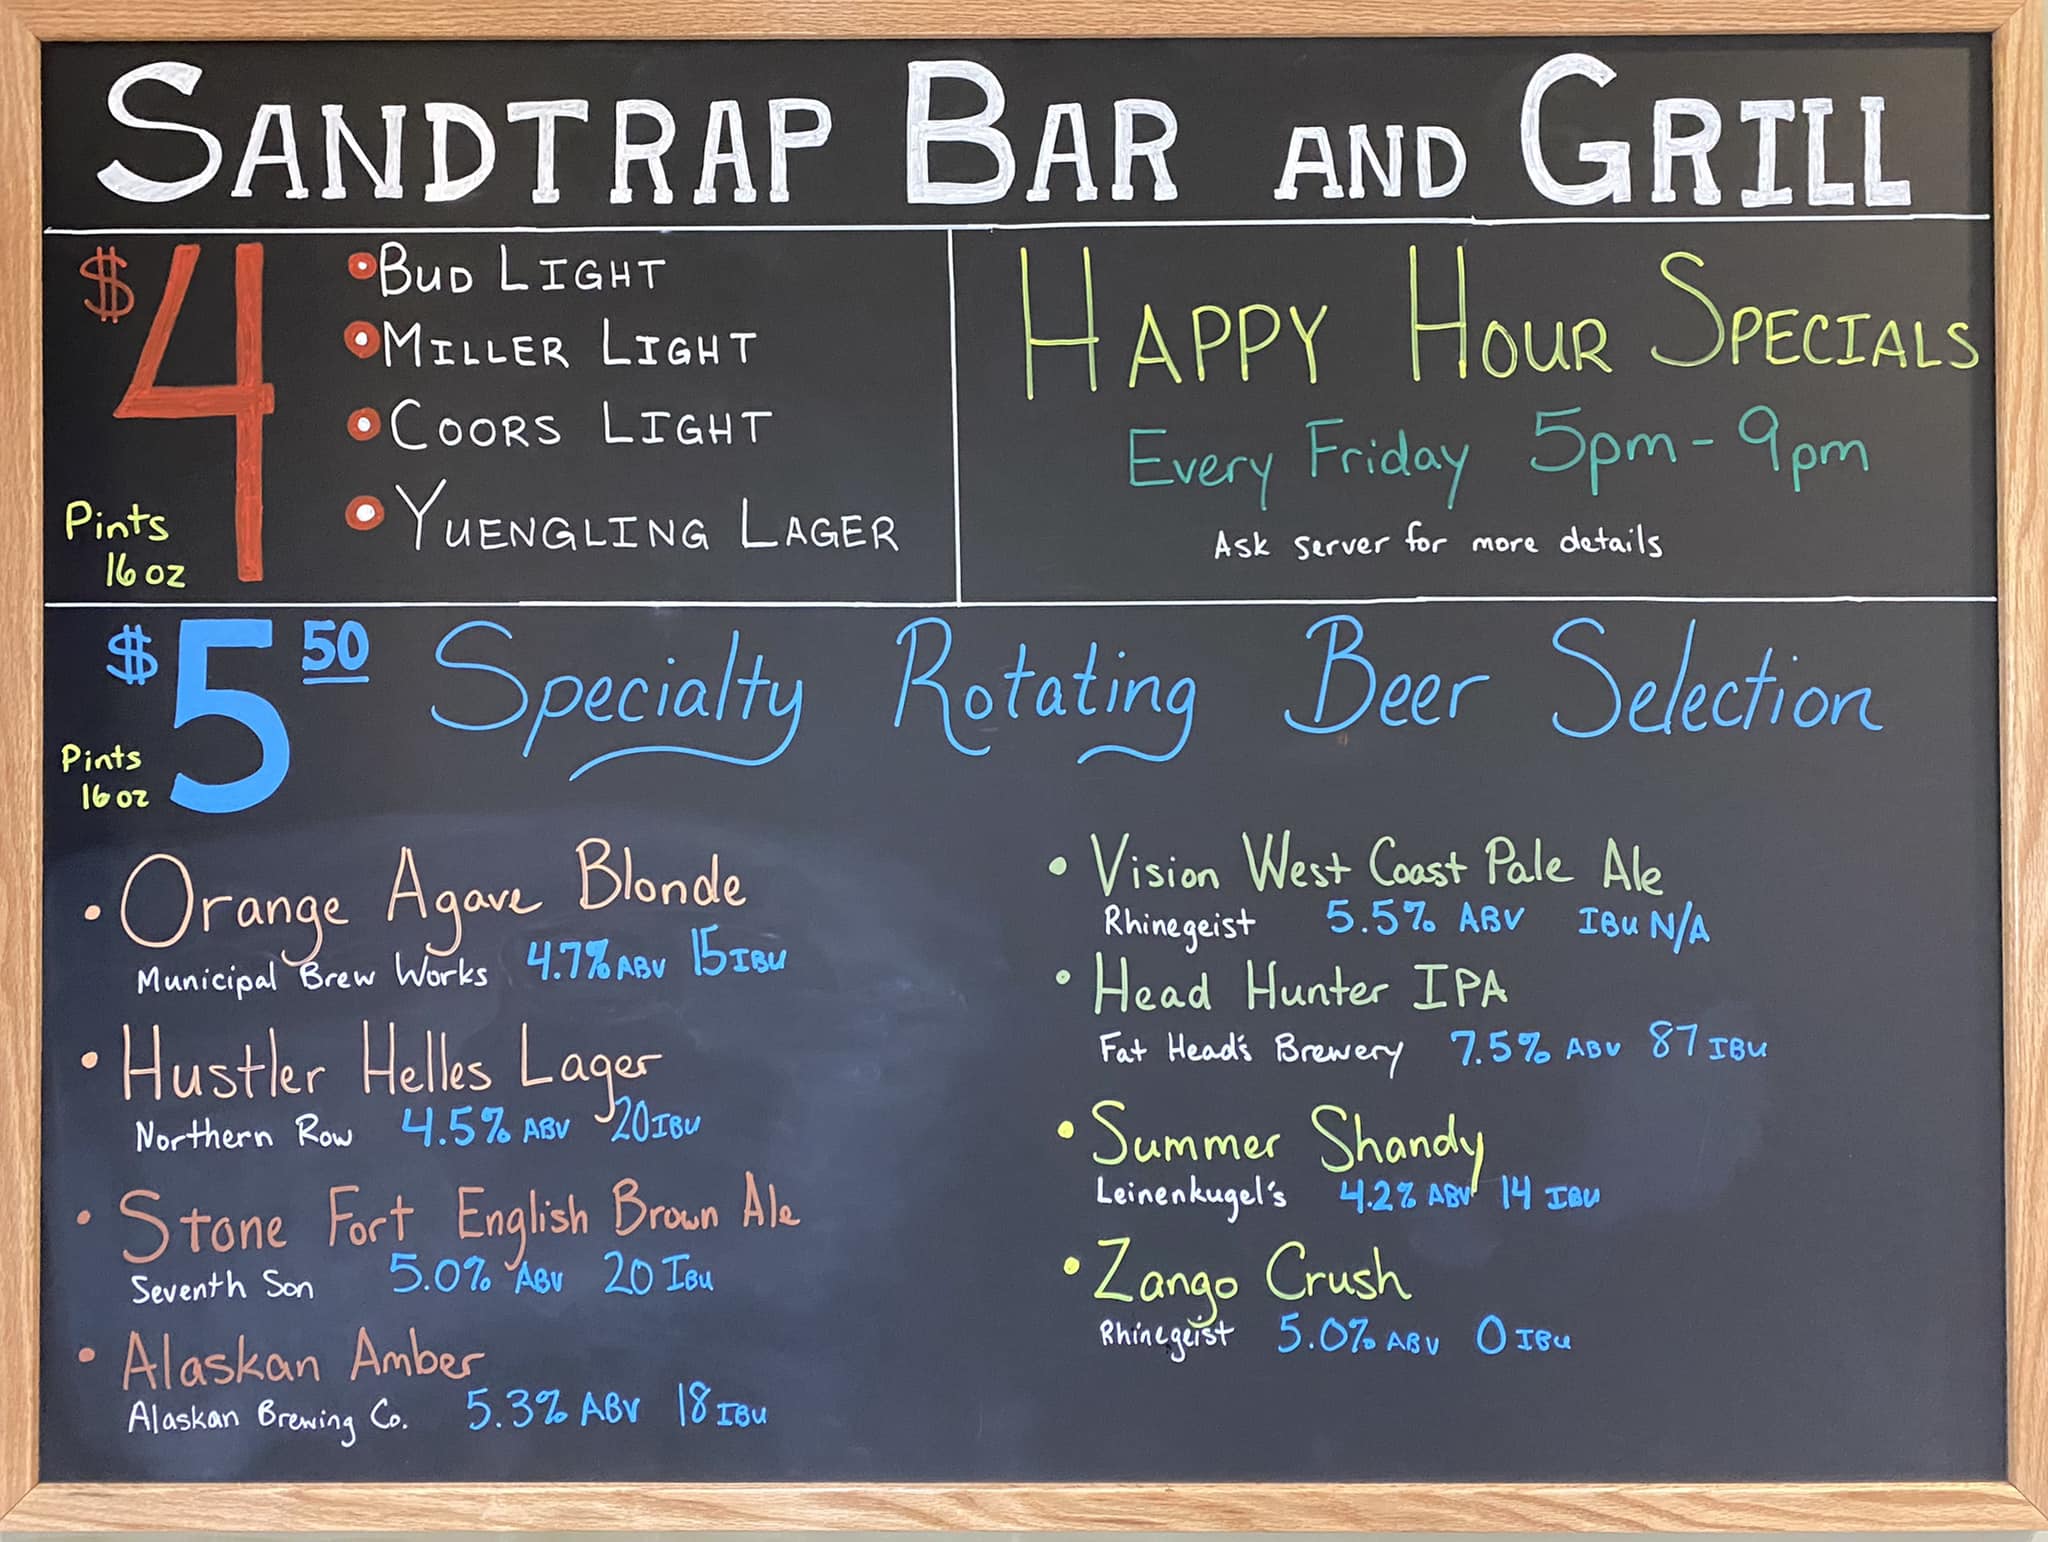 SANDTRAP BAR AND GRILL
$4
Pints
16 oz
BUD LIGHT
MILLER LIGHT
COORS LIGHT
YUENGLING LAGER
HAPPY HOUR SPECIALS
Every Friday 5pm - 9pm
Ask server for more details
$5 50 Specialty Rotating Beer Selection
Pints
16 oz
• Orange Agave Blonde
Municipal Brew Works 4.7% ABV 15 IBU
• Hustler Helles Lager
Northern Row 4.5% ABV 20 IBU
• Stone Fort English Brown Ale
Seventh Son 5.0% ABV 20 IBU
• Alaskan Amber
Alaskan Brewing Co. 5.3% ABV 18 IBU
• Vision West Coast Pale Ale
Rhinegeist 5.5% ABV IBU N/A
• Head Hunter IPA
Fat Head's Brewery 7.5% ABV 87 IBU
• Summer Shandy
Leinenkugel's 4.2% ABV 14 IBU
• Zango Crush
Rhinegeist 5.0% ABV 0 IBU